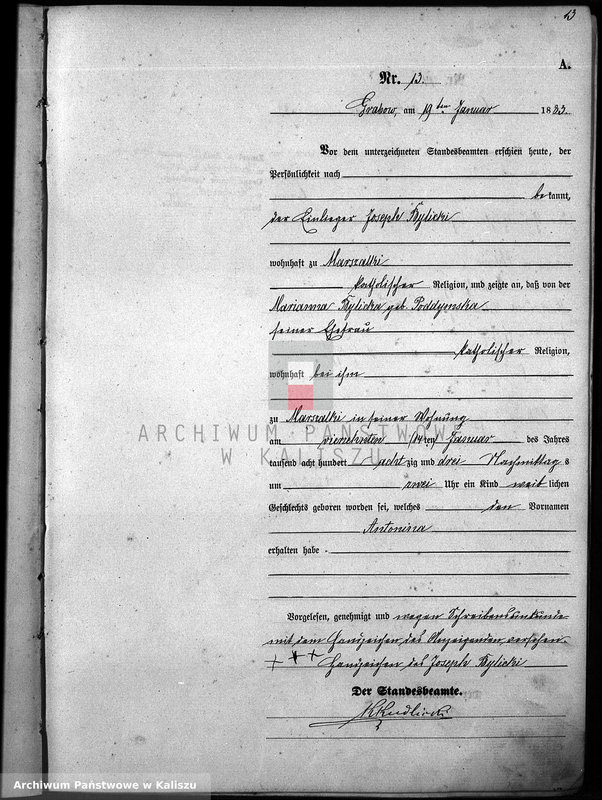 13
A.
Nr. 13.
Grabow, am 19ten Januar 1883.
Vor dem unterzeichneten Standesbeamten erschien heute, der
Persönlichkeit nach
bekannt,
der Einlieger Joseph Kylicki
wohnhaft zu Marszalki
katholischer Religion, und zeigte an, daß von der
Marianna Kylicka geb. Poddymska
seiner Ehefrau
katholischer Religion,
wohnhaft bei ihm
zu Marszalki in seiner Wohnung
am vierzehnten (14ten) Januar des Jahres
tausend acht hundert achtzig und drei Nachmittags
um zwei Uhr ein Kind weiblichen
Geschlechts geboren worden sei, welches den Vornamen
Antonina
erhalten habe.
Vorgelesen, genehmigt und wegen Schreibensunkunde
mit dem Handzeichen des Anzeigenden versehen.
+ + + Handzeichen des Joseph Kylicki
Der Standesbeamte.
ARCHIWUM PAŃSTWOWE
W KALISZU
Archiwum Państwowe w Kaliszu